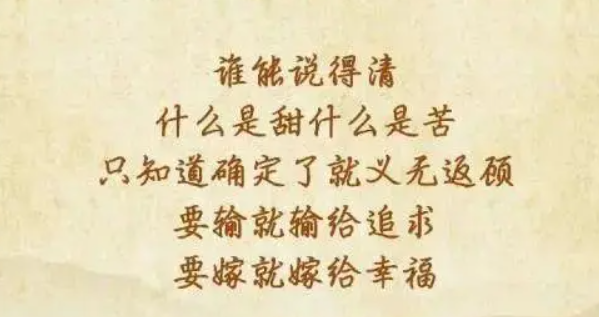 谁能说得清
什么是甜什么是苦
只知道确定了就义无返顾
要输就输给追求
要嫁就嫁给幸福